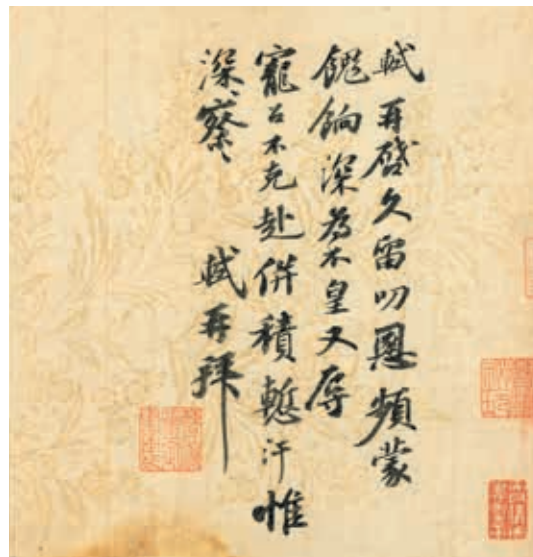 軾再啓久留叨恩頻蒙
餽餉深為不皇又辱
寵召不克赴併積慙汗惟
深察深察
軾再拜